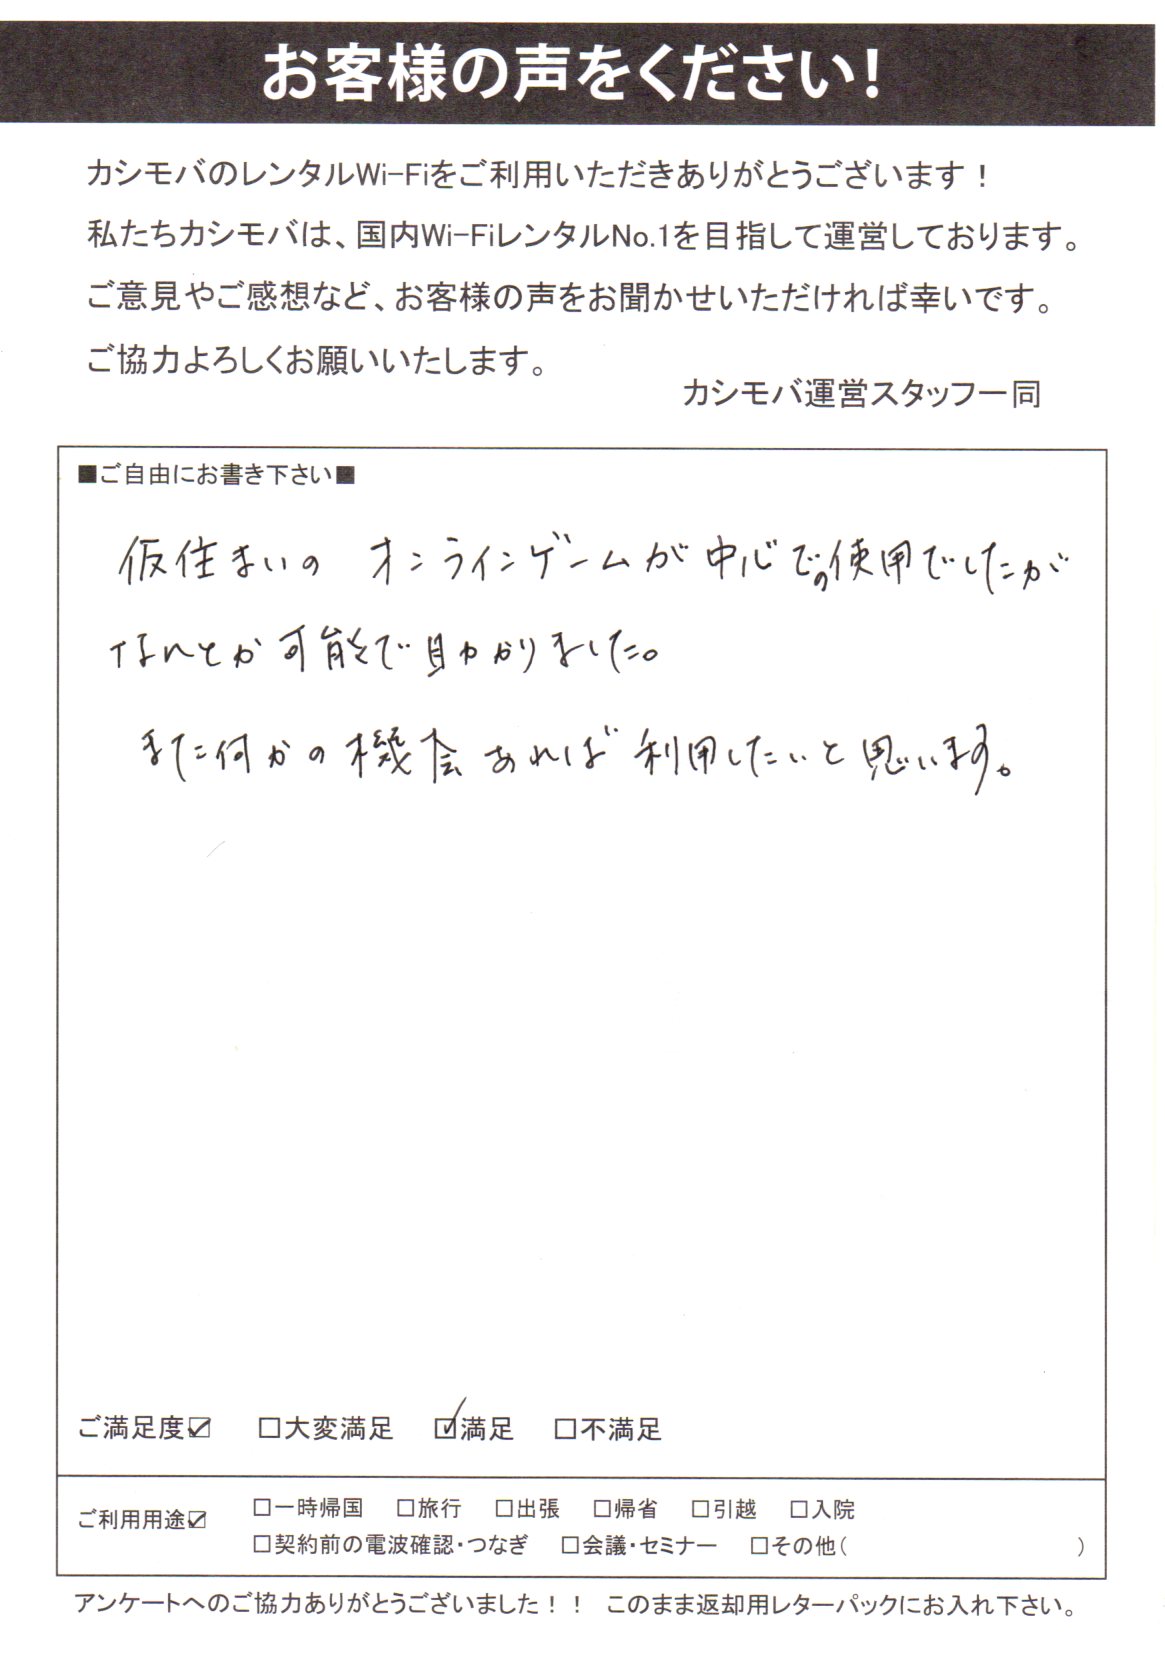 お客様の声をください!
カシモバのレンタルWi-Fiをご利用いただきありがとうございます!
私たちカシモバは、国内Wi-FiレンタルNo.1を目指して運営しております。
ご意見やご感想など、お客様の声をお聞かせいただければ幸いです。
ご協力よろしくお願いいたします。
カシモバ運営スタッフ一同
■ご自由にお書き下さい■
仮住まいの オンラインゲームが中心での使用でしたが
なんとか可能で助かりました。
また何かの機会あれば利用したいと思います。
ご満足度☑ □大変満足 ☑満足 □不満足
ご利用用途☑ □一時帰国 □旅行 □出張 □帰省 □引越 □入院
□契約前の電波確認・つなぎ □会議・セミナー □その他( )
アンケートへのご協力ありがとうございました!! このまま返却用レターパックにお入れ下さい。